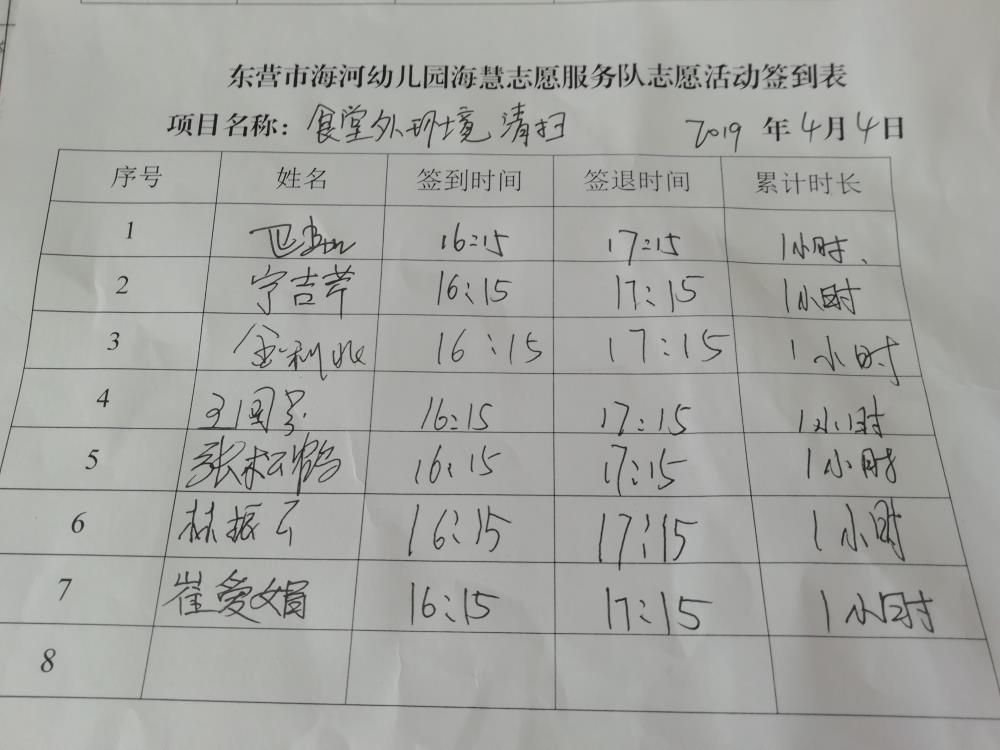 东营市海河幼儿园海慧志愿服务队志愿活动签到表
项目名称：食堂外环境清扫 2019 年 4 月 4 日
序号 姓名 签到时间 签退时间 累计时长
1 16:15 17:15 1小时、
2 宁吉芹 16:15 17:15 1小时
3 金利 16:15 17:15 1小时
4 王国 16:15 17:15 1小时
5 张松鹤 16:15 17:15 1小时
6 林振云 16:15 17:15 1小时
7 崔爱娟 16:15 17:15 1小时
8